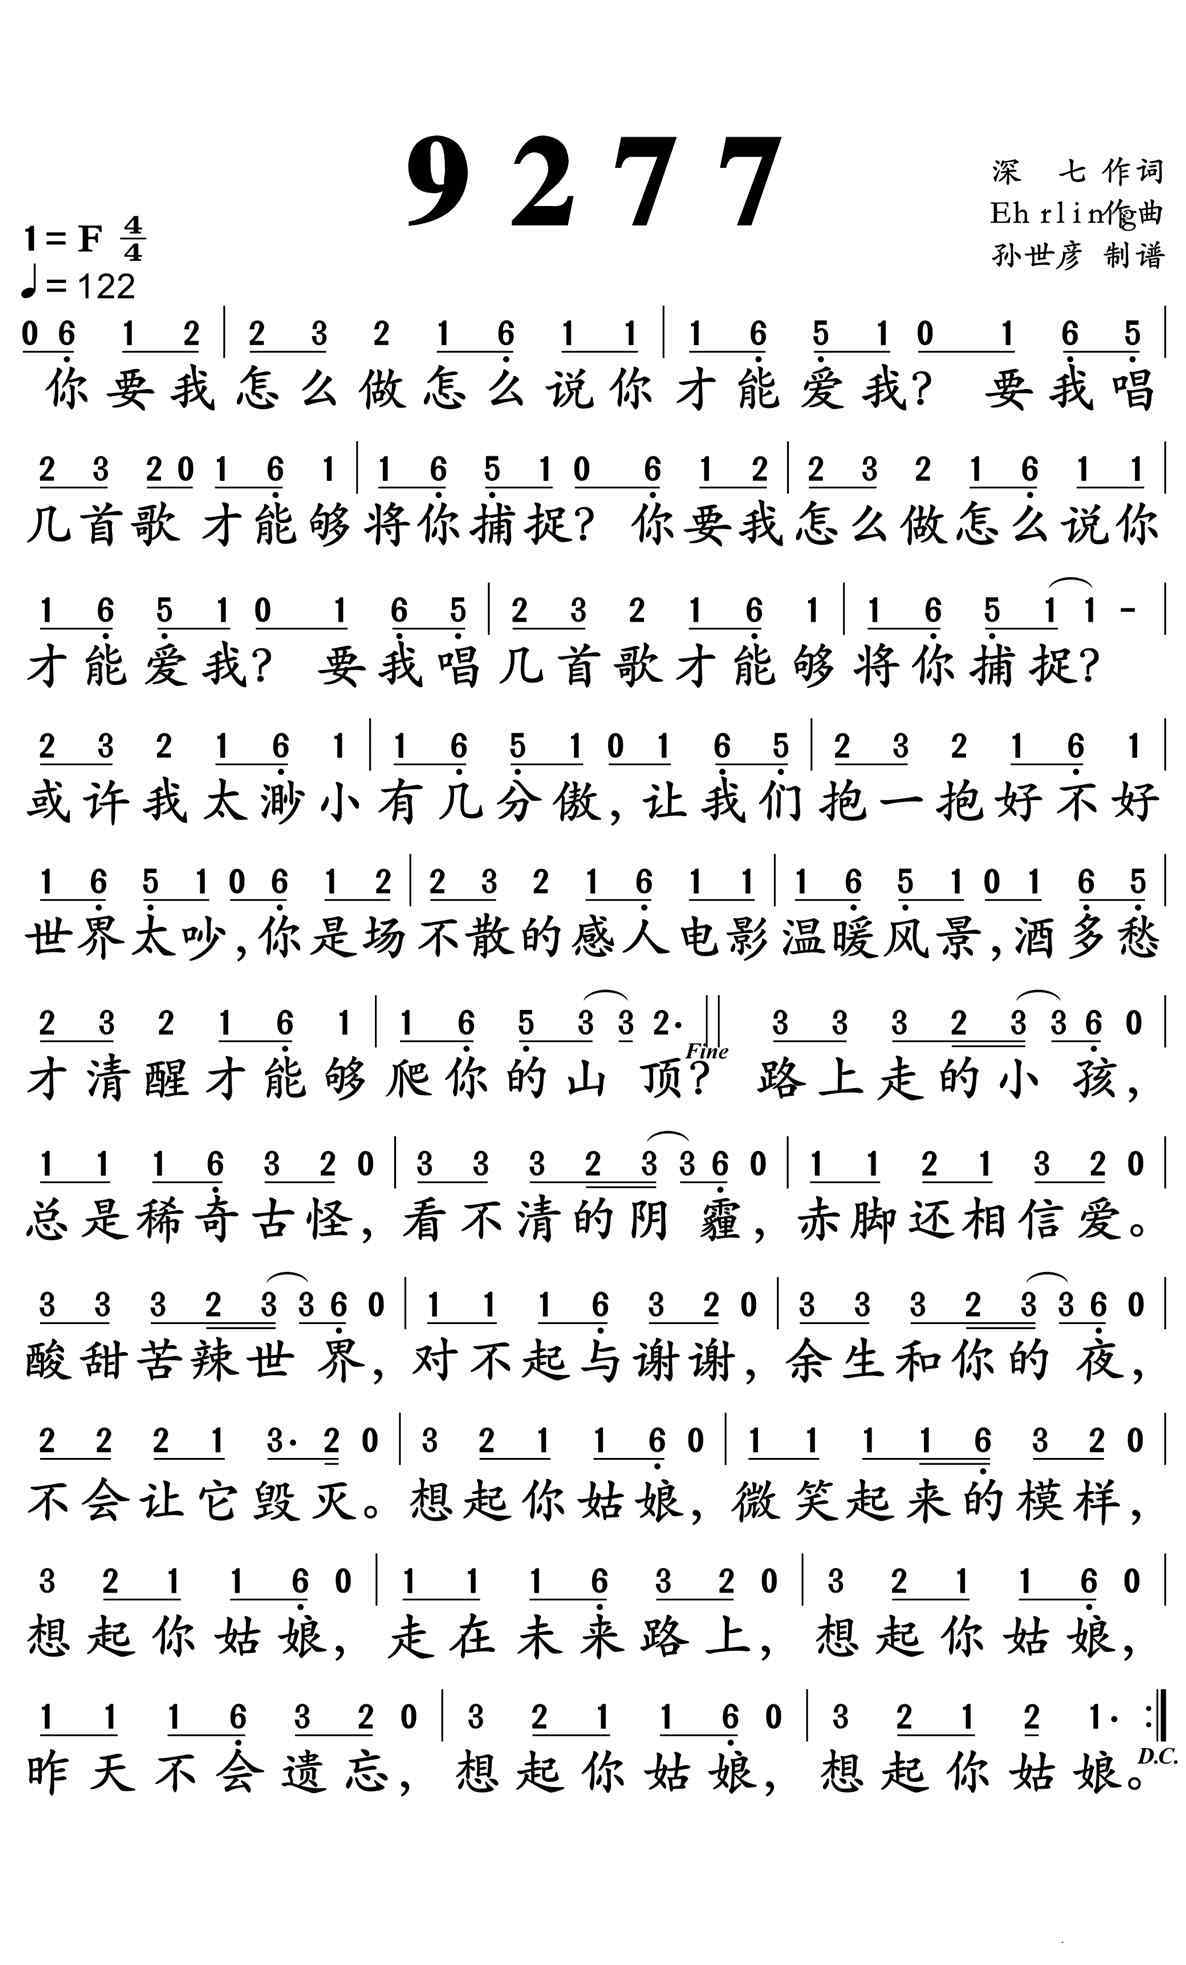 9277
深 七 作词
Ehrling作曲
孙世彦 制谱
1=F 4/4
♩=122
0 6 1 2 | 2 3 2 1 6 1 1 | 1 6 5 1 0 1 6 5 |
你要我怎么做怎么说你才能爱我? 要我唱
2 3 2 0 1 6 1 | 1 6 5 1 0 6 1 2 | 2 3 2 1 6 1 1 |
几首歌 才能够将你捕捉? 你要我怎么做怎么说你
1 6 5 1 0 1 6 5 | 2 3 2 1 6 1 | 1 6 5 1 1 - |
才能爱我? 要我唱几首歌才能够将你捕捉?
2 3 2 1 6 1 | 1 6 5 1 0 1 6 5 | 2 3 2 1 6 1 |
或许我太渺小有几分傲,让我们抱一抱好不好
1 6 5 1 0 6 1 2 | 2 3 2 1 6 1 1 | 1 6 5 1 0 1 6 5 |
世界太吵,你是场不散的感人电影温暖风景,酒多愁
2 3 2 1 6 1 | 1 6 5 3 3 2· || 3 3 3 2 3 3 6 0 |
Fine
才清醒才能够爬你的山顶? 路上走的小孩,
1 1 1 6 3 2 0 | 3 3 3 2 3 3 6 0 | 1 1 2 1 3 2 0 |
总是稀奇古怪,看不清的阴霾,赤脚还相信爱。
3 3 3 2 3 3 6 0 | 1 1 1 6 3 2 0 | 3 3 3 2 3 3 6 0 |
酸甜苦辣世界,对不起与谢谢,余生和你的夜,
2 2 2 1 3· 2 0 | 3 2 1 1 6 0 | 1 1 1 1 6 3 2 0 |
不会让它毁灭。想起你姑娘,微笑起来的模样,
3 2 1 1 6 0 | 1 1 1 6 3 2 0 | 3 2 1 1 6 0 |
想起你姑娘,走在未来路上,想起你姑娘,
1 1 1 6 3 2 0 | 3 2 1 1 6 0 | 3 2 1 2 1· :||
D.C.
昨天不会遗忘,想起你姑娘,想起你姑娘。